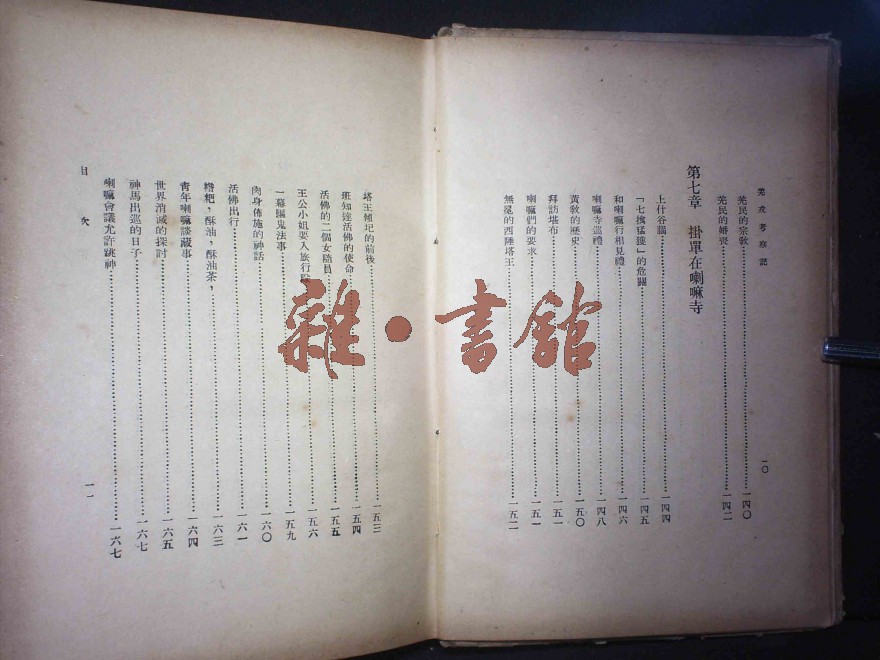 羌戎考察記
一〇
羌民的宗敎……一四〇
羌民的婚喪……一四二
第七章 掛單在喇嘛寺
上什谷腦……一四四
「七擒猛獲」的危關……一四五
和喇嘛行相見禮……一四六
喇嘛寺巡禮……一四八
黃敎的歷史……一五〇
拜訪堪布……一五一
喇嘛們的要求……一五一
無冕的西陲塔王……一五二
塔王傾圮的前後……一五三
班知達活佛的使命……一五四
活佛的二個女隨員……一五五
王公小姐要入旅行……一五六
一幕驅鬼法事……一五九
肉身佈施的神話……一六〇
活佛出行……一六一
糌粑，酥油，酥油茶，……一六三
靑年喇嘛談藏事……一六四
世界消滅的探討……一六五
神馬出巡的日子……一六七
喇嘛會議允許跳神……一六七
目次
一一
雜·書館